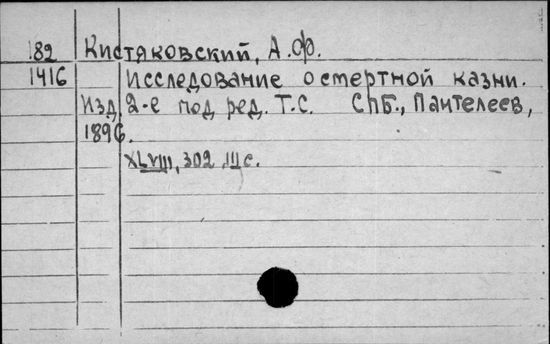 82 Кистяковский, А.Ф.
1416 Исследование о смертной казни.
Изд. 2-е под ред. Т.С. СПБ., Пантелеев,
1896.
XLVIII, 302, III с.